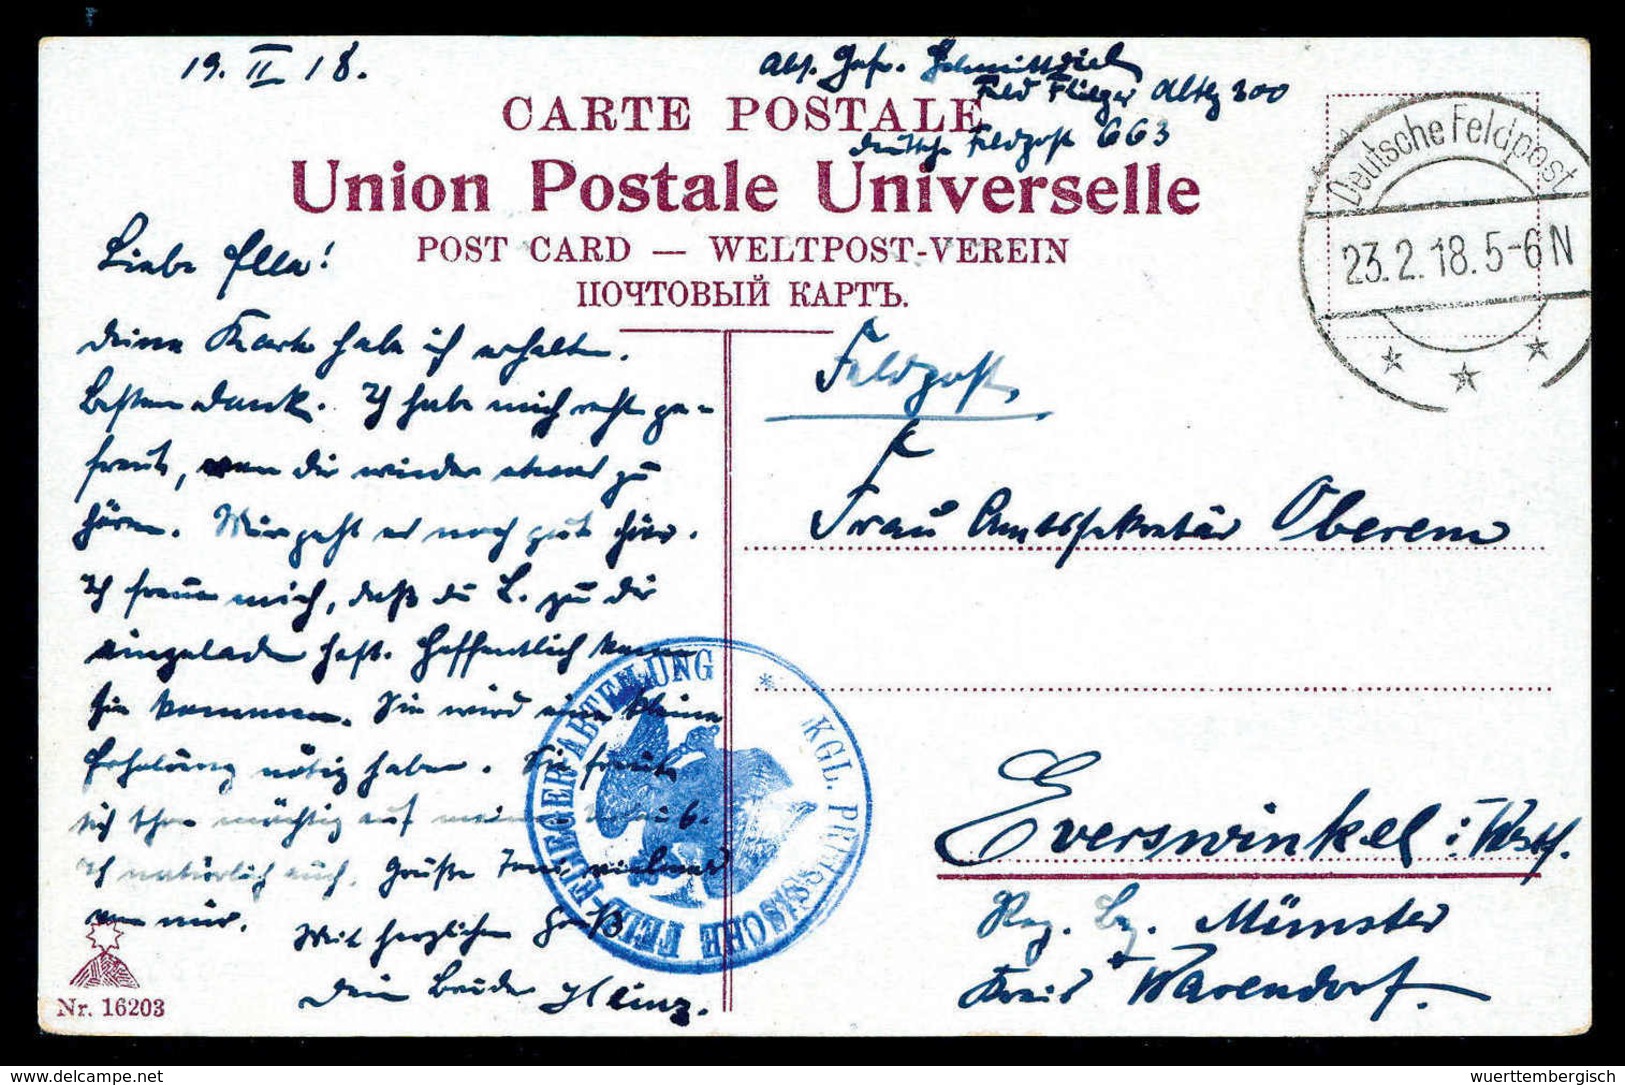 19. II 18.
Abs. Gefr. Schmittdiel
Feld Flieger Abtlg 300
deutsche Feldpost 663
CARTE POSTALE
Union Postale Universelle
POST CARD — WELTPOST-VEREIN
ПОЧТОВЫЙ КАРТЪ.
Deutsche Feldpost
23.2.18.5-6N
Liebe Ella!
deine Karte habe ich erhalten.
Besten Dank. Ich habe mich recht ge-
freut, von dir wieder etwas zu
hören. Mir geht es noch gut hier.
Ich freue mich, daß du L. zu dir
eingeladen hast. Hoffentlich kann
sie kommen. Sie wird eine kleine
Erholung nötig haben. Sie freut
sich schon mächtig auf meinen Urlaub.
Ich natürlich auch. Grüße Toni vielmals
von mir.
Mit herzlichem Gruß
dein Bruder Heinz.
Feldpost
Frau Amtssekretär Oberem
Everswinkel i. Westf.
Reg. Bz. Münster
Kreis Warendorf.
KGL. PREUSSISCHE FELD-FLIEGER ABTEILUNG
Nr. 16203
www.wuerttembergisch